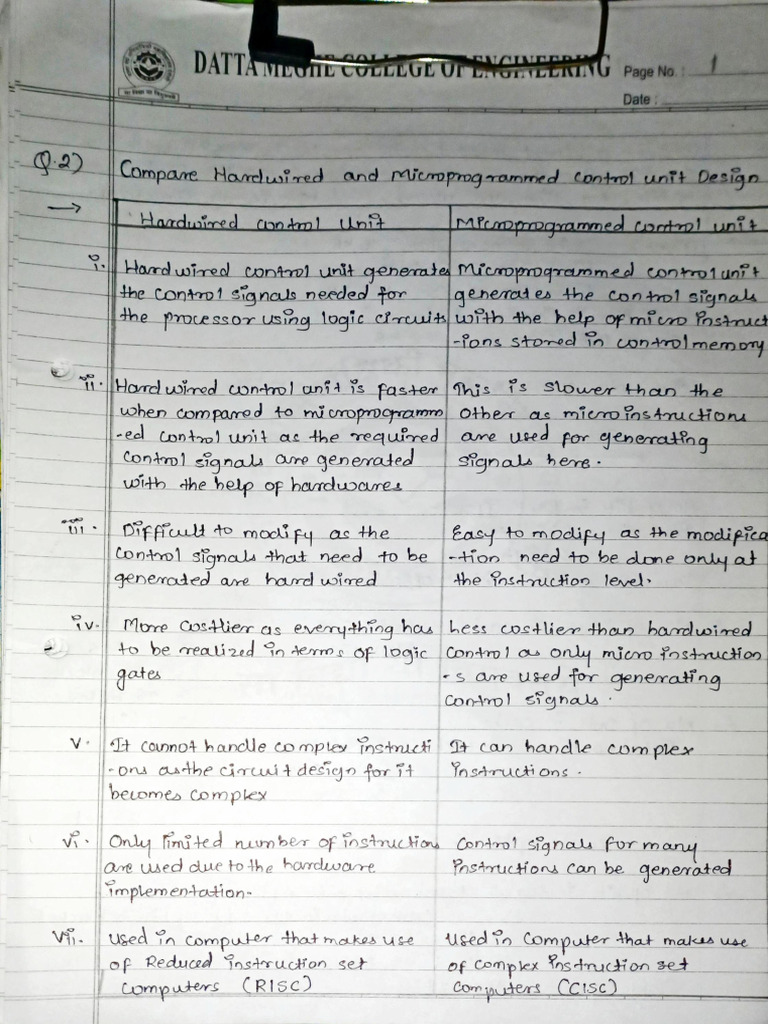 DATTA MEGHE COLLEGE OF ENGINEERING
Page No. : 1
Date :
Q.2) Compare Hardwired and Microprogrammed control unit Design
→
Hardwired control Unit
Microprogrammed control unit
i. Hardwired control unit generates
the control signals needed for
the processor using logic circuits
Microprogrammed control unit
generates the control signals
with the help of micro instruct
-ions stored in control memory
ii. Hardwired control unit is faster
when compared to microprogramm
-ed control unit as the required
control signals are generated
with the help of hardwares
This is slower than the
other as microinstructions
are used for generating
signals here.
iii. Difficult to modify as the
control signals that need to be
generated are hard wired
Easy to modify as the modifica
-tion need to be done only at
the instruction level.
iv. More costlier as everything has
to be realized in terms of logic
gates
Less costlier than hardwired
control as only micro instruction
-s are used for generating
control signals.
v. It cannot handle complex instructi
-ons as the circuit design for it
becomes complex
It can handle complex
instructions.
vi. Only limited number of instructions
are used due to the hardware
implementation.
Control signals for many
instructions can be generated
vii. Used in computer that makes use
of Reduced instruction set
computers (RISC)
Used in computer that makes use
of complex instruction set
computers (CISC)